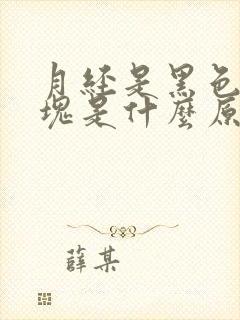 月经是黑色
塊是什麼原
薛某